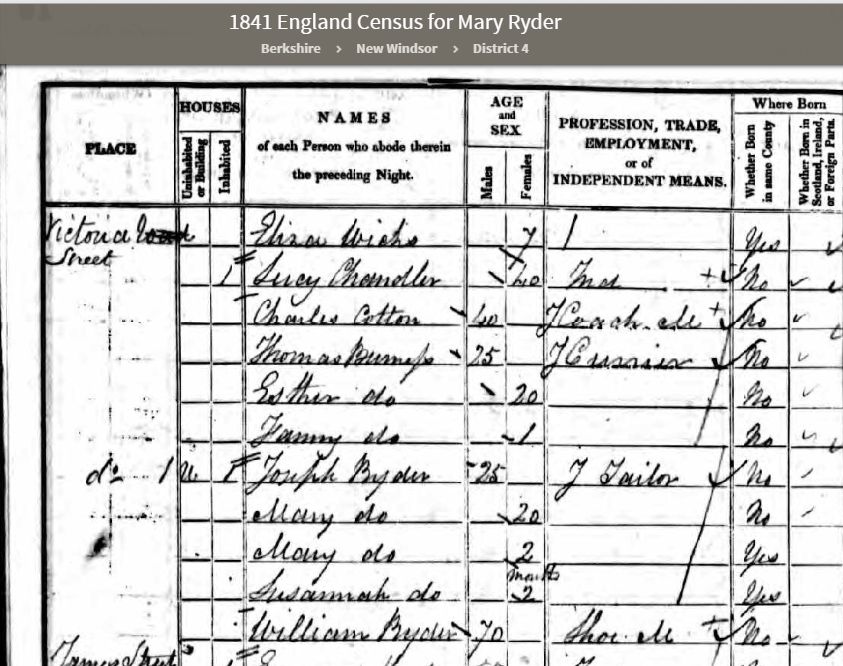 1841 England Census for Mary Ryder
Berkshire > New Windsor > District 4
PLACE
HOUSES
Uninhabited or Building
Inhabited
NAMES
of each Person who abode therein
the preceding Night.
AGE
and
SEX
Males
Females
PROFESSION, TRADE,
EMPLOYMENT,
or of
INDEPENDENT MEANS.
Where Born
Whether Born in same County
Whether Born in Scotland, Ireland, or Foreign Parts.
Victoria
Street
Eliza Wicks 7 Yes
1 Lucy Chandler 40 Ind No
Charles Cotton 40 J Coach. M No
Thomas Burness 25 J Currier No
Esther do 20 No
Fanny do 1 No
do 1 U 1 Joseph Ryder 25 J Tailor No
Mary do 20 No
Mary do 2 Yes
Susannah do months 2 Yes
William Ryder 70 Shoe. M No
James Street